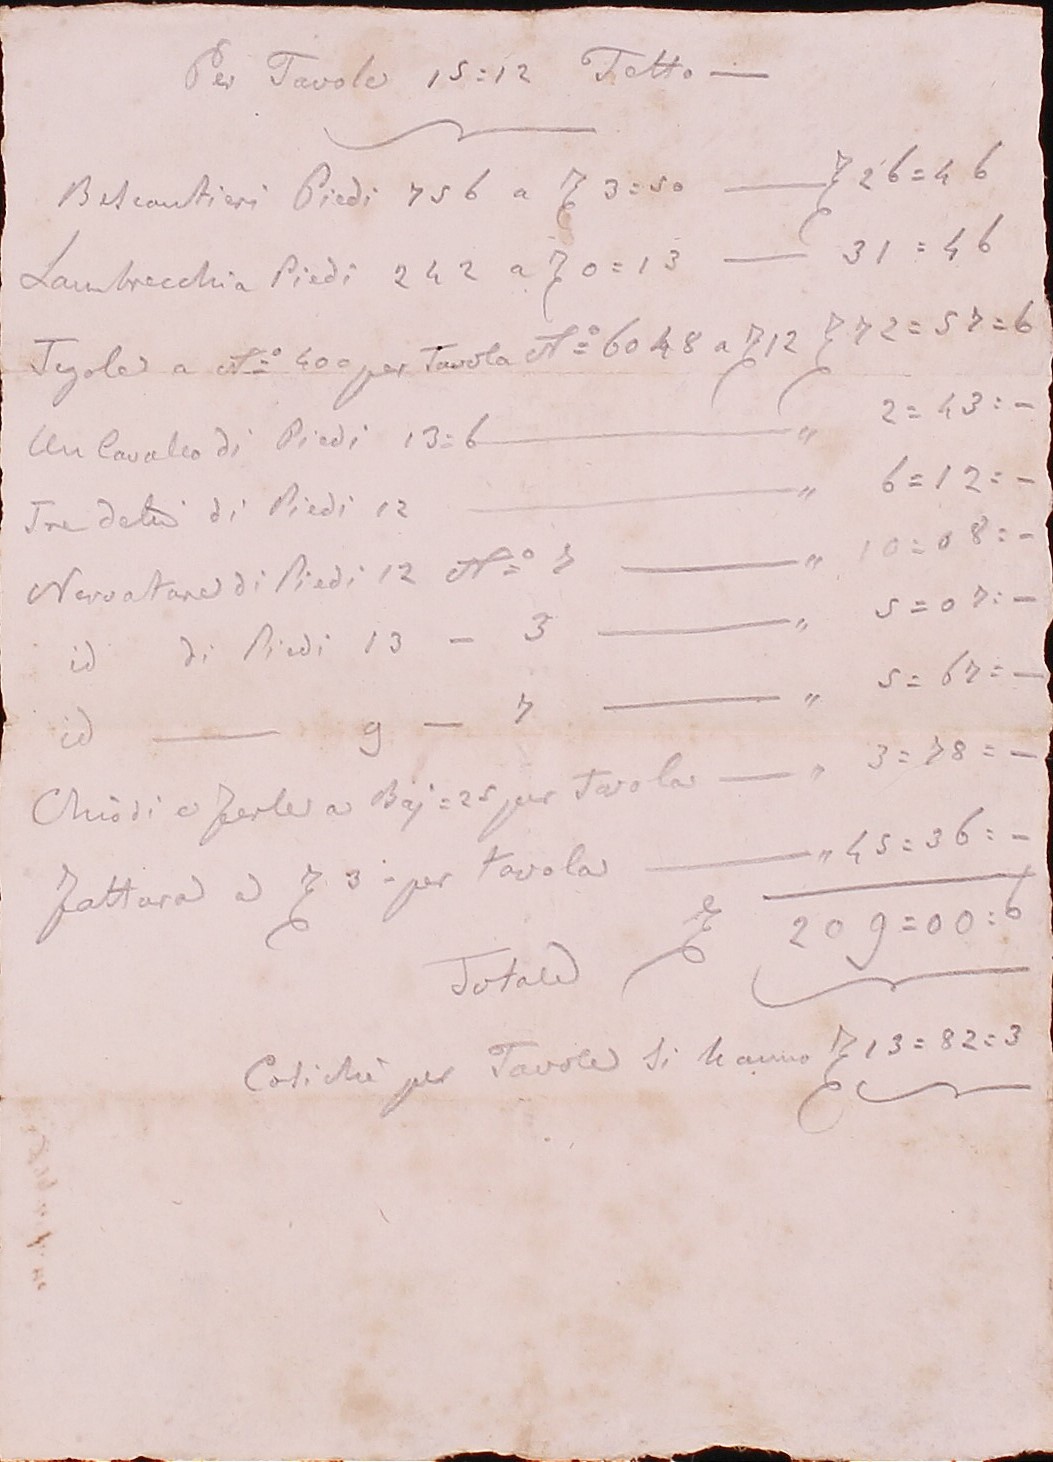 Per Tavole 15=12 Tetto —
Bescantieri Piedi 756 a Ʒ 3=50 — Ʒ 26=46
Lambrecchia Piedi 242 a Ʒ 0=13 — 31=46
Tegole a N.° 400 per Tavola N.° 6048 a Ʒ 12 Ʒ 72=57=6
Un Cavaleo di Piedi 13=6 — „ 2=43=-
Tre detti di Piedi 12 — „ 6=12=-
Nervature di Piedi 12 N.° 7 — „ 10=08=-
id di Piedi 13 – 3 — „ 5=07=-
id — 9 – 7 — „ 5=67=-
Chiodi e ferle a Baj=25 per Tavola — „ 3=78=-
Fattura a Ʒ 3- per tavola — „ 45=36=-
Totale Ʒ 209=00=6
Cosichè per Tavole si hanno Ʒ 13=82=3